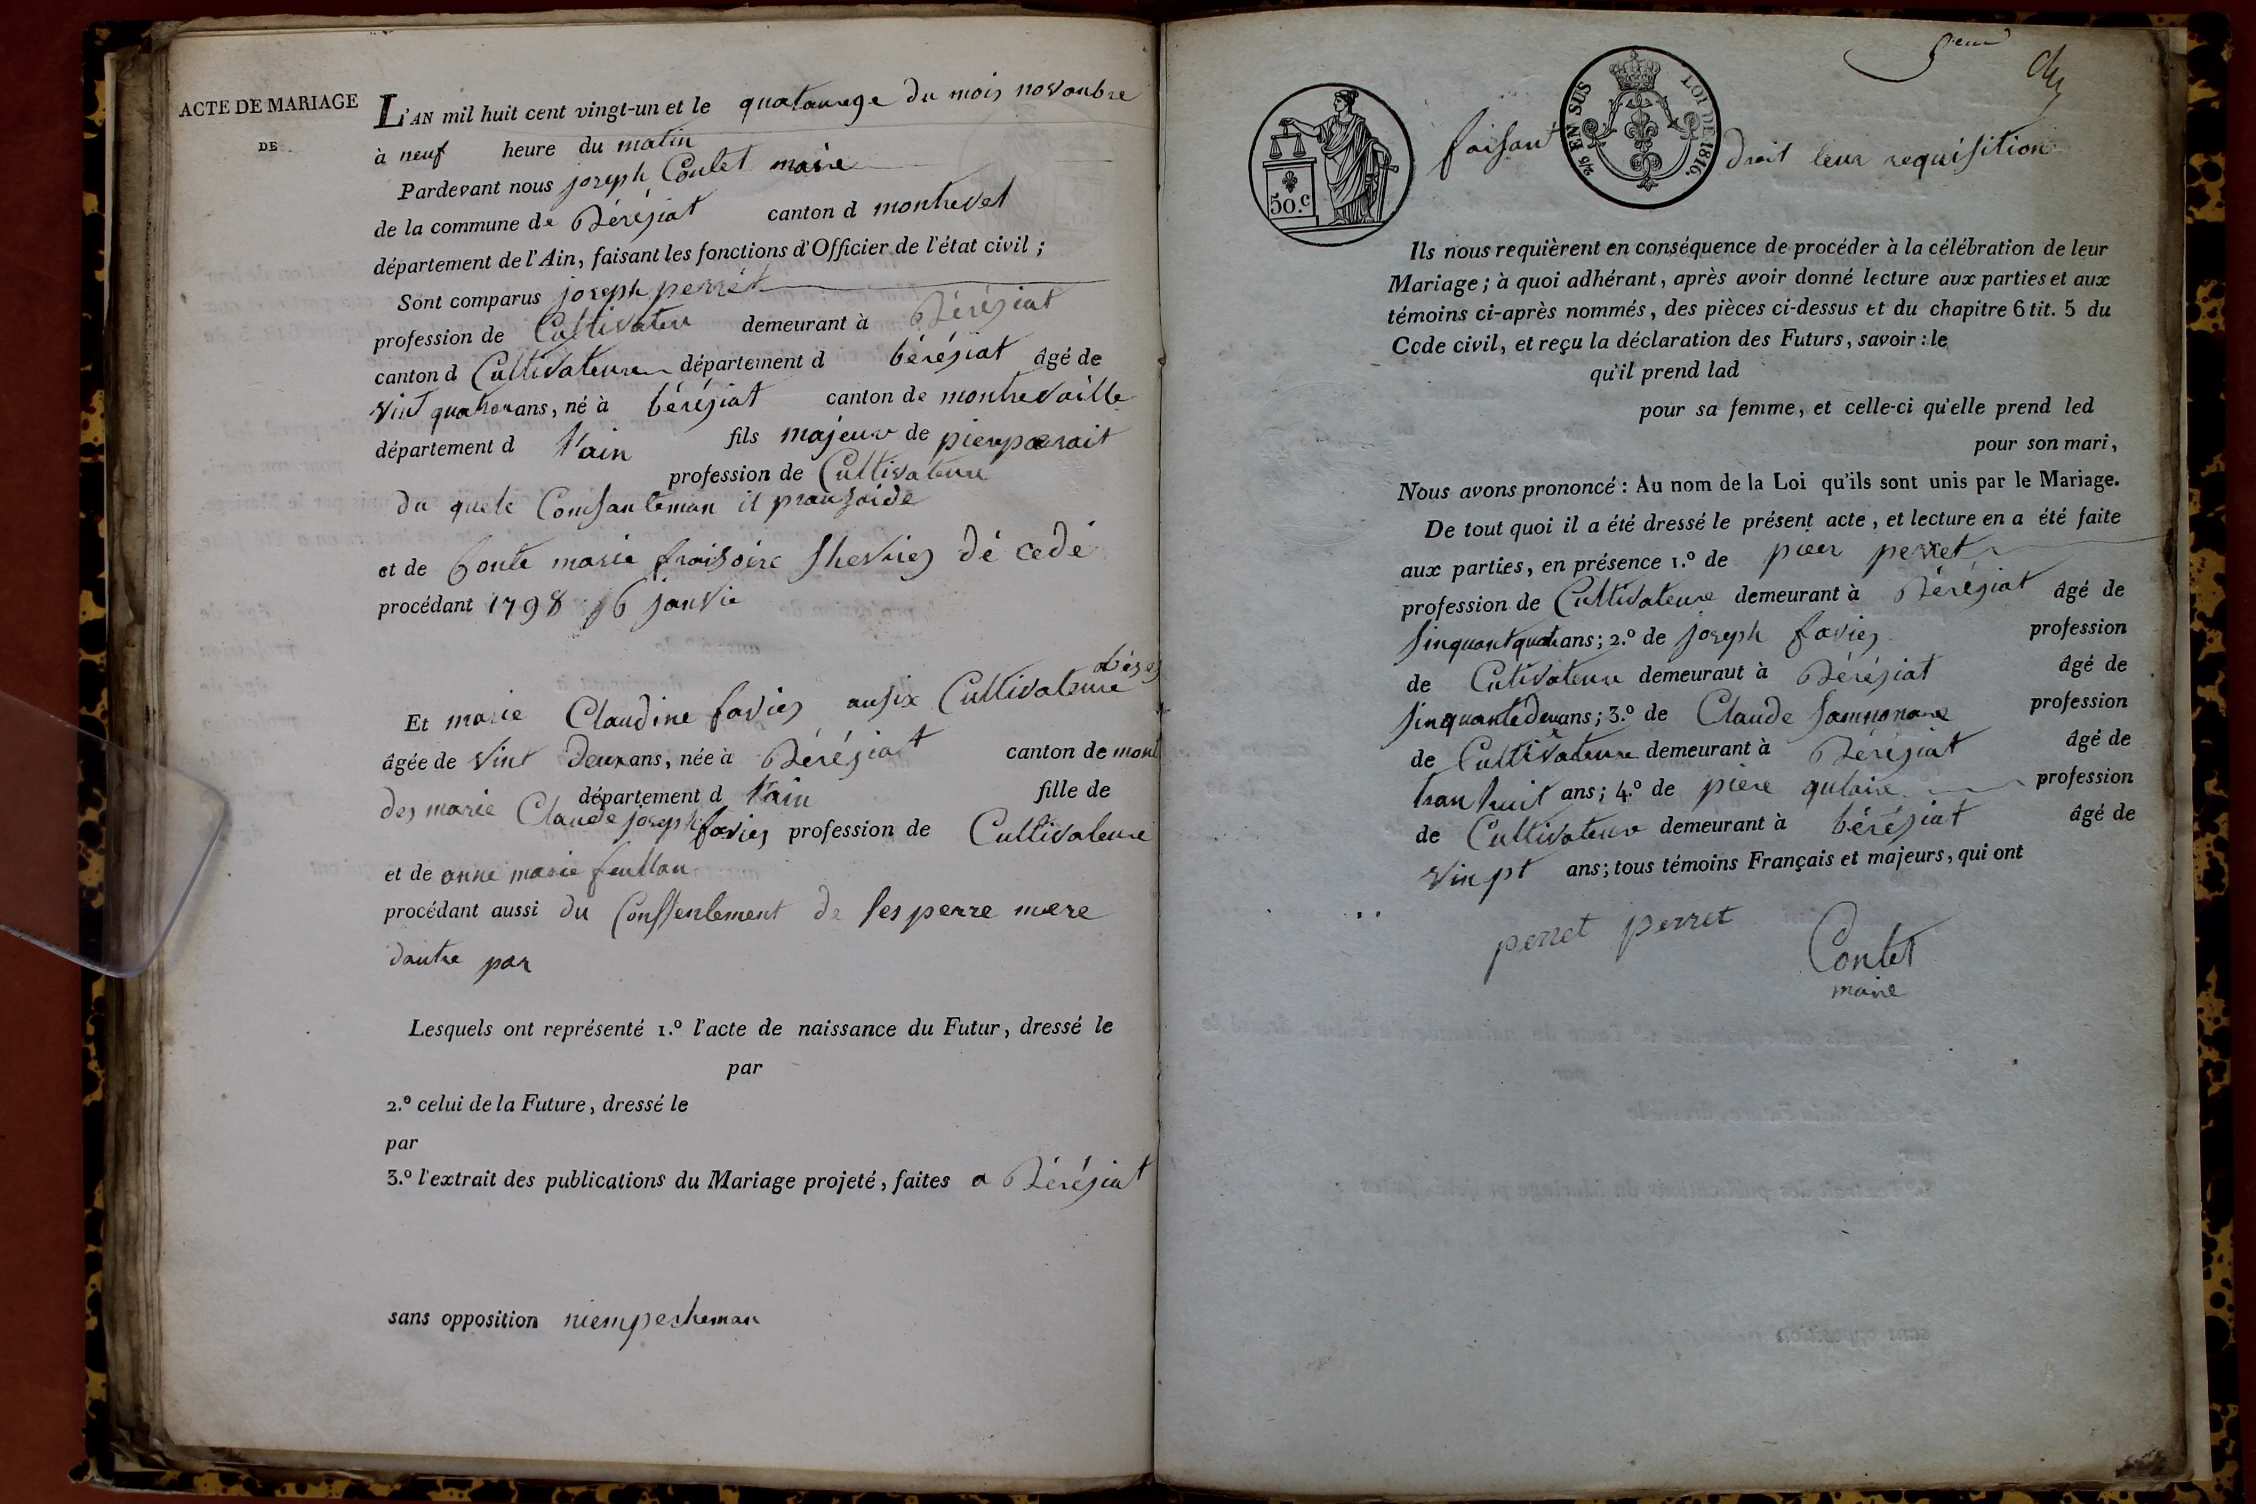 ACTE DE MARIAGE
DE
L'AN mil huit cent vingt-un et le quatourge du mois novonbre
à neuf heure du matin
Pardevant nous joseph Conlet maire
de la commune de Bérésiat canton d montrevel
département de l'Ain, faisant les fonctions d'Officier de l'état civil ;
Sont comparus joseph perrét
profession de Cultivateu demeurant à Bérésiat
canton d Cultivateure département d bérésiat âgé de
vint quatre ans, né à bérésiat canton de montrevaille
département d l'ain fils majeur de
profession de Cultivateure
du quele Consanteman il
et de marie dé cedé
procédant 1798 16 janvie
Et marie Claudine favies ausix Cultivateure
âgée de vint deux ans, née à Bérésiat canton de mont
département d l'ain fille de
des marie Claude joseph favies profession de Cultivateure
et de anne marie feullan
procédant aussi du Conssentement de ses perre mere
dautre par
Lesquels ont représenté 1.º l'acte de naissance du Futur, dressé le
par
2.º celui de la Future, dressé le
par
3.º l'extrait des publications du Mariage projeté, faites a Bérésiat
sans opposition niempesheman
50.c
2/5 EN SUS LOI DE 1816.
faisant droit leur requisition
Ils nous requièrent en conséquence de procéder à la célébration de leur
Mariage ; à quoi adhérant, après avoir donné lecture aux parties et aux
témoins ci-après nommés, des pièces ci-dessus et du chapitre 6 tit. 5 du
Code civil, et reçu la déclaration des Futurs, savoir : le
qu'il prend lad
pour sa femme, et celle-ci qu'elle prend led
pour son mari,
Nous avons prononcé : Au nom de la Loi qu'ils sont unis par le Mariage.
De tout quoi il a été dressé le présent acte, et lecture en a été faite
aux parties, en présence 1.º de pieer perret
profession de Cultivateure demeurant à Bérésiat âgé de
sinquant quatre ans ; 2.º de joseph favies profession
de Cutivateure demeuraut à Bérésiat âgé de
sinquante deux ans ; 3.º de Claude profession
de Cultivateure demeurant à Bérésiat âgé de
tran huit ans ; 4.º de piere profession
de Cultivateure demeurant à bérésiat âgé de
vinpt ans ; tous témoins Français et majeurs, qui ont
perret perret Conlet
maire